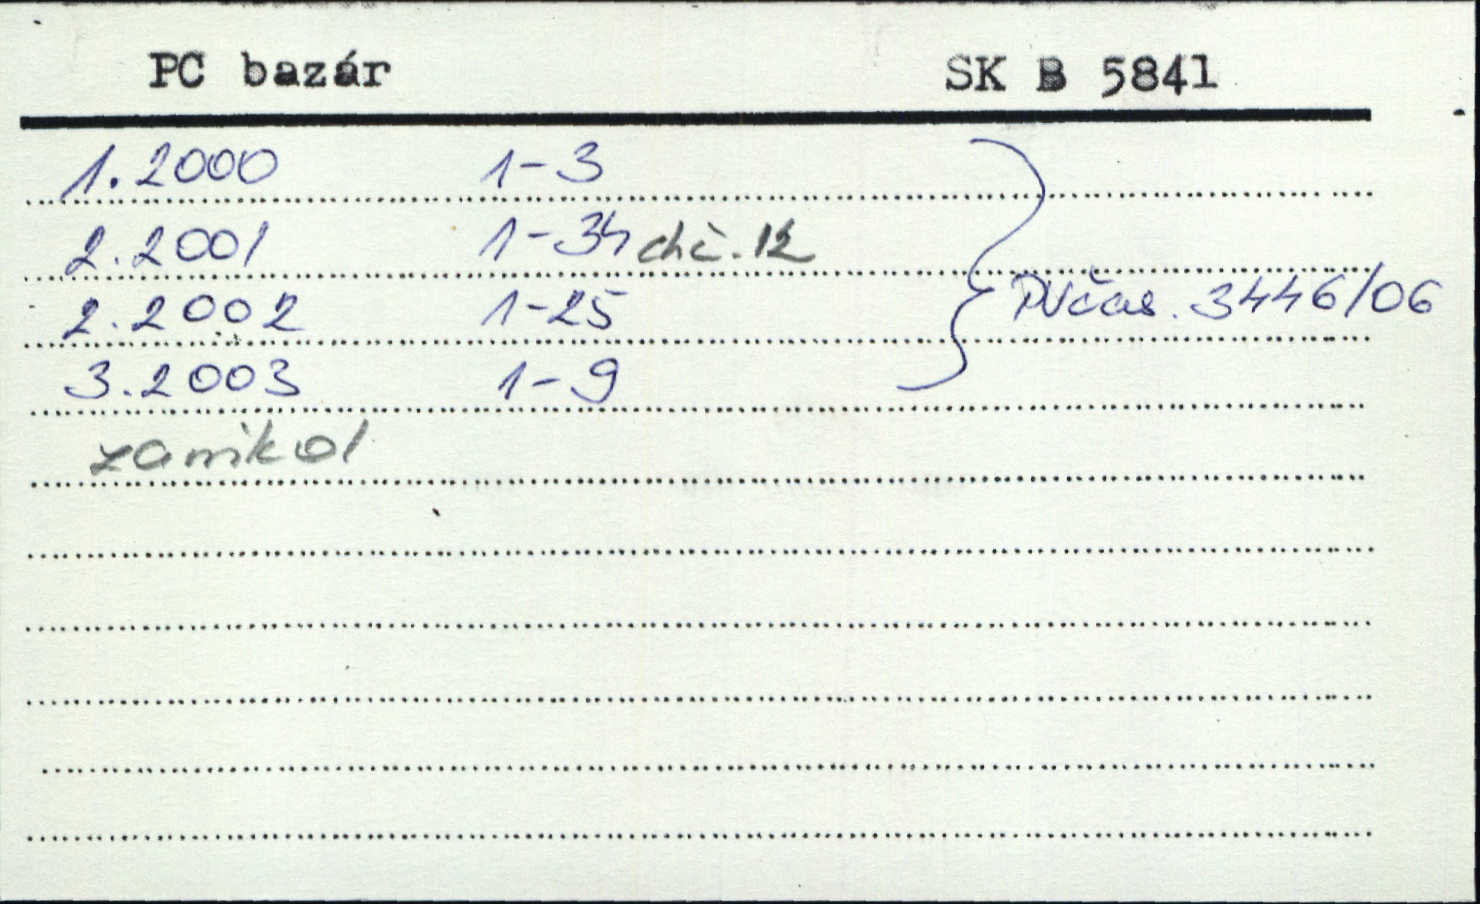 PC bazár SK B 5841
1.2000 1-3
2.2001 1-34 chč.12
2.2002 1-25
PVčas. 3446/06
3.2003 1-9
zanikol